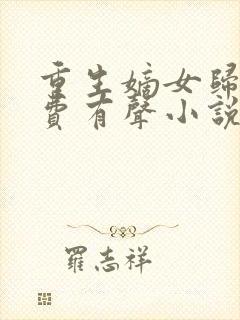 重生嫡女歸
費有聲小說
羅志祥